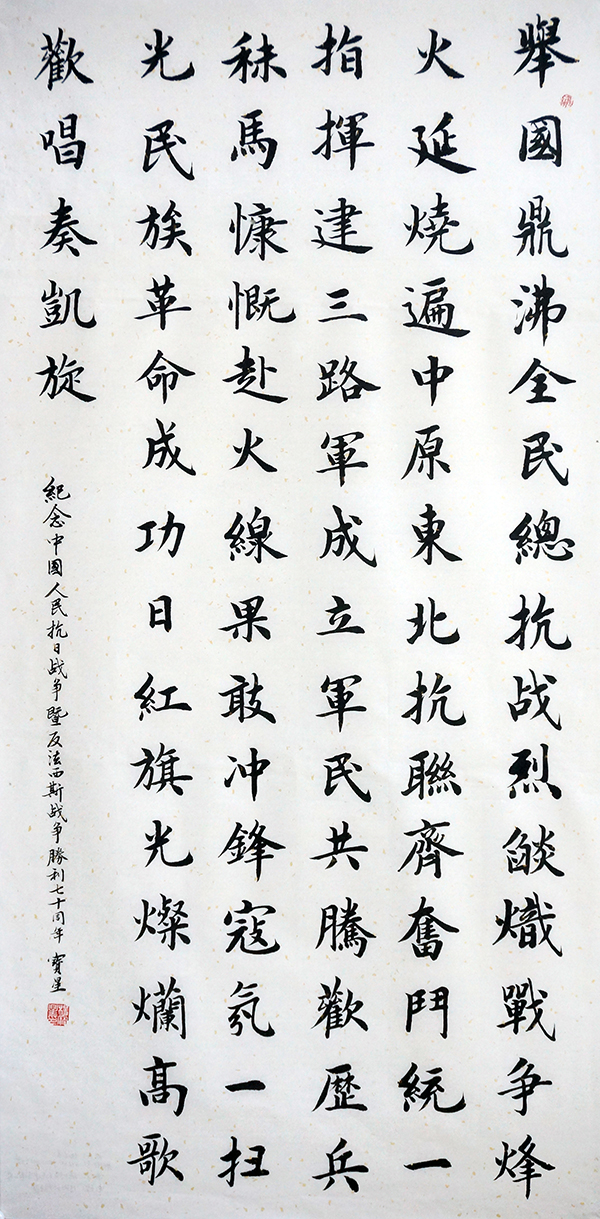 舉國鼎沸全民總抗战烈燄熾戰争烽
火延燒遍中原東北抗聯齊奮鬥統一
指揮建三路軍成立軍民共騰歡歷兵
秣馬慷慨赴火線果敢冲鋒寇氛一扫
光民族革命成功日紅旗光燦爛高歌
歡唱奏凱旋
紀念中國人民抗日战争暨反法西斯战争勝利七十周年 寶星